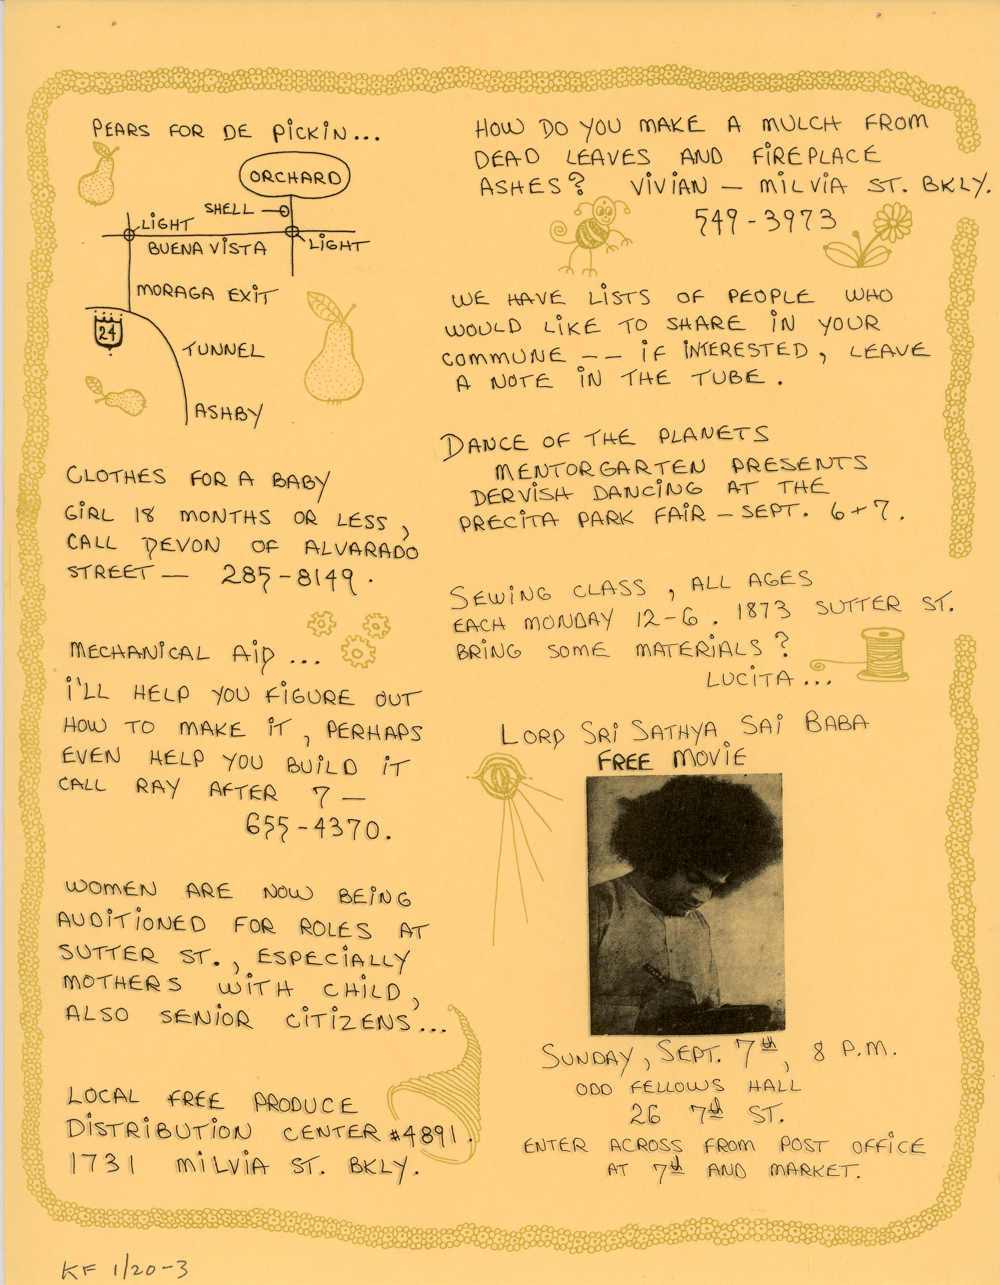 PEARS FOR DE PICKIN...
ORCHARD
SHELL
LIGHT
BUENA VISTA
LIGHT
MORAGA EXIT
24
TUNNEL
ASHBY
CLOTHES FOR A BABY
GIRL 18 MONTHS OR LESS,
CALL DEVON OF ALVARADO
STREET — 285-8149.
MECHANICAL AID ...
I'LL HELP YOU FIGURE OUT
HOW TO MAKE IT, PERHAPS
EVEN HELP YOU BUILD IT
CALL RAY AFTER 7 —
655-4370.
WOMEN ARE NOW BEING
AUDITIONED FOR ROLES AT
SUTTER ST., ESPECIALLY
MOTHERS WITH CHILD,
ALSO SENIOR CITIZENS...
LOCAL FREE PRODUCE
DISTRIBUTION CENTER #4891.
1731 MILVIA ST. BKLY.
HOW DO YOU MAKE A MULCH FROM
DEAD LEAVES AND FIREPLACE
ASHES? VIVIAN — MILVIA ST. BKLY.
549-3973
WE HAVE LISTS OF PEOPLE WHO
WOULD LIKE TO SHARE IN YOUR
COMMUNE -- IF INTERESTED, LEAVE
A NOTE IN THE TUBE.
DANCE OF THE PLANETS
MENTORGARTEN PRESENTS
DERVISH DANCING AT THE
PRECITA PARK FAIR — SEPT. 6+7.
SEWING CLASS, ALL AGES
EACH MONDAY 12-6. 1873 SUTTER ST.
BRING SOME MATERIALS?
LUCITA...
LORD SRI SATHYA SAI BABA
FREE MOVIE
SUNDAY, SEPT. 7th, 8 P.M.
ODD FELLOWS HALL
26 7th ST.
ENTER ACROSS FROM POST OFFICE
AT 7th AND MARKET.
KF 1/20-3